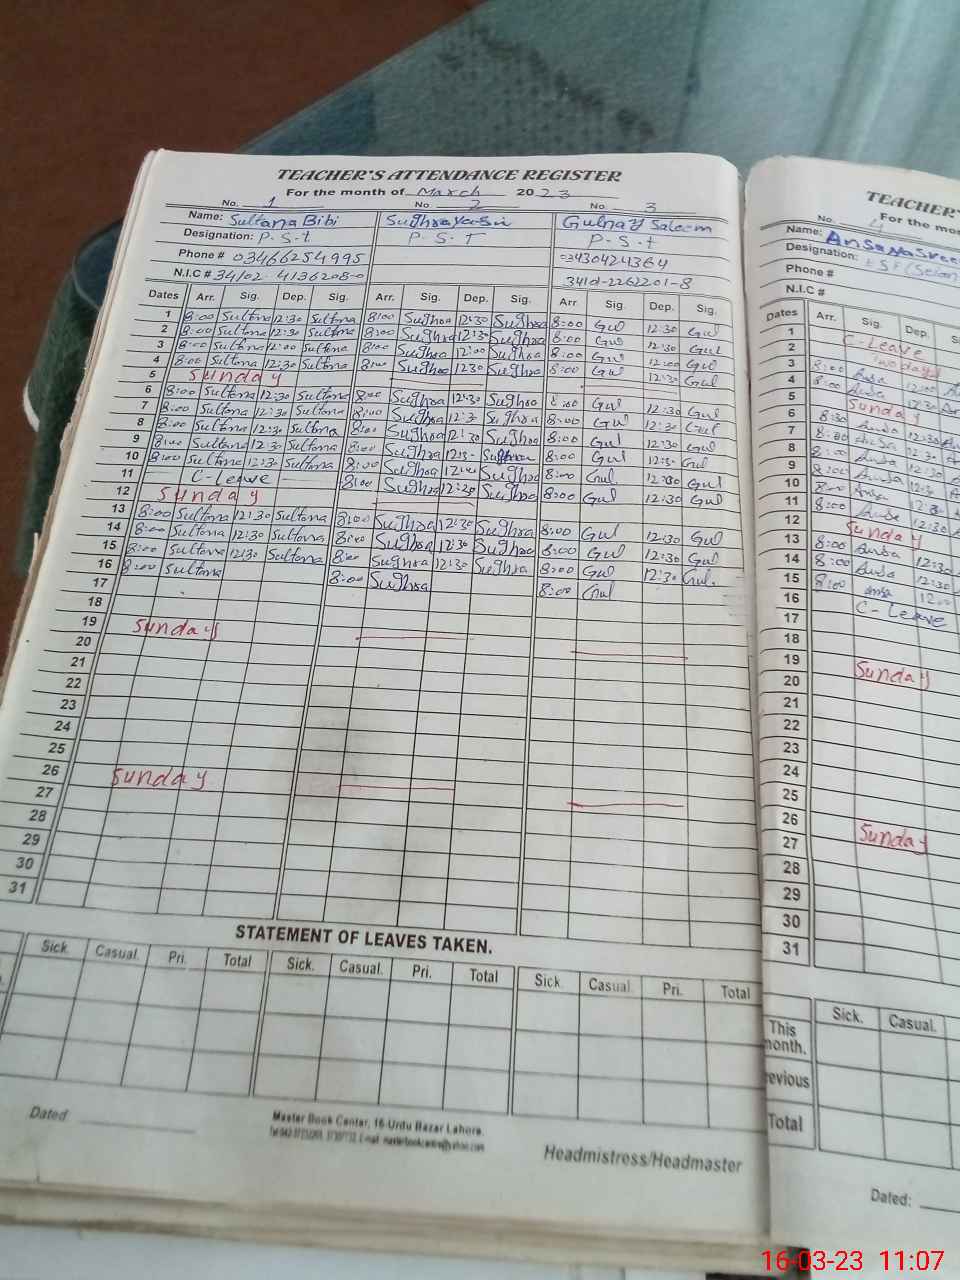 TEACHER'S ATTENDANCE REGISTER
For the month of March 2023
No. 1 No 2 No. 3
Name: Sultana Bibi Sughra Yasin Gulnaz Saleem
Designation: P.S.t P.S.T P.S.t
Phone # 03466254995 03430424364
N.I.C # 34102-4136208-0 34101-2262201-8
Dates Arr. Sig. Dep. Sig. Arr. Sig. Dep. Sig. Arr Sig. Dep. Sig.
1 8:00 Sultana 12:30 Sultana 8:00 Sughra 12:30 Sughra 8:00 Gul 12:30 Gul
2 8:00 Sultana 12:30 Sultana 8:00 Sughra 12:30 Sughra 8:00 Gul 12:30 Gul
3 8:00 Sultana 12:00 Sultana 8:00 Sughra 12:00 Sughra 8:00 Gul 12:00 Gul
4 8:00 Sultana 12:30 Sultana 8:00 Sughra 12:30 Sughra 8:00 Gul 12:30 Gul
5 Sunday
6 8:00 Sultana 12:30 Sultana 8:00 Sughra 12:30 Sughra 8:00 Gul 12:30 Gul
7 8:00 Sultana 12:30 Sultana 8:00 Sughra 12:3 Sughra 8:00 Gul 12:30 Gul
8 8:00 Sultana 12:30 Sultana 8:00 Sughra 12:30 Sughra 8:00 Gul 12:30 Gul
9 8:00 Sultana 12:30 Sultana 8:00 Sughra Sughra 8:00 Gul 12:30 Gul
10 8:00 Sultana 12:30 Sultana 8:00 Sughra Sughra 8:00 Gul. 12:00 Gul
11 C-Leave 8:00 Sughra Sughra 8:00 Gul 12:30 Gul
12 Sunday
13 8:00 Sultana 12:30 Sultana 8:00 Sughra 12:30 Sughra 8:00 Gul 12:30 Gul
14 8:00 Sultana 12:30 Sultana 8:00 Sughra 12:30 Sughra 8:00 Gul 12:30 Gul
15 8:00 Sultana 12:30 Sultana 8:00 Sughra 12:30 Sughra 8:00 Gul 12:30 Gul.
16 8:00 Sultana 8:00 Sughra 8:00 Gul
17
18
19 Sunday
20
21
22
23
24
25
26 Sunday
27
28
29
30
31
STATEMENT OF LEAVES TAKEN.
Sick. Casual. Pri. Total Sick. Casual. Pri. Total Sick. Casual. Pri. Total
Dated
Master Book Center, 16-Urdu Bazar Lahore.
Headmistress/Headmaster
TEACHER'
No. 4 For the mo
Name:
Designation:
Phone #
N.I.C #
Dates Arr. Sig. Dep.
1
2 C-Leave
3 8:00
4 8:00
5 Sunday
6 8:30
7 8:00
8 8:00
9 8:00
10 8:00
11
12 Sunday
13 8:00
14 8:00
15 8:00
16 C-Leave
17
18
19 Sunday
20
21
22
23
24
25
26 Sunday
27
28
29
30
31
Sick. Casual.
This
month.
evious
Total
Dated:
16-03-23 11:07